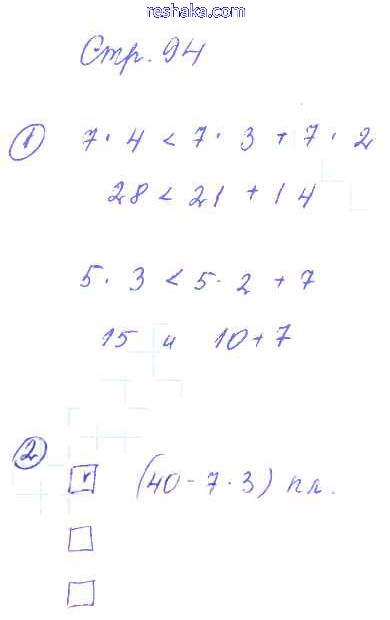 reshaka.com
Стр. 94
1 7 · 4 < 7 · 3 + 7 · 2
28 < 21 + 14
5 · 3 < 5 · 2 + 7
15 и 10 + 7
2
v (40 - 7 · 3) пл.